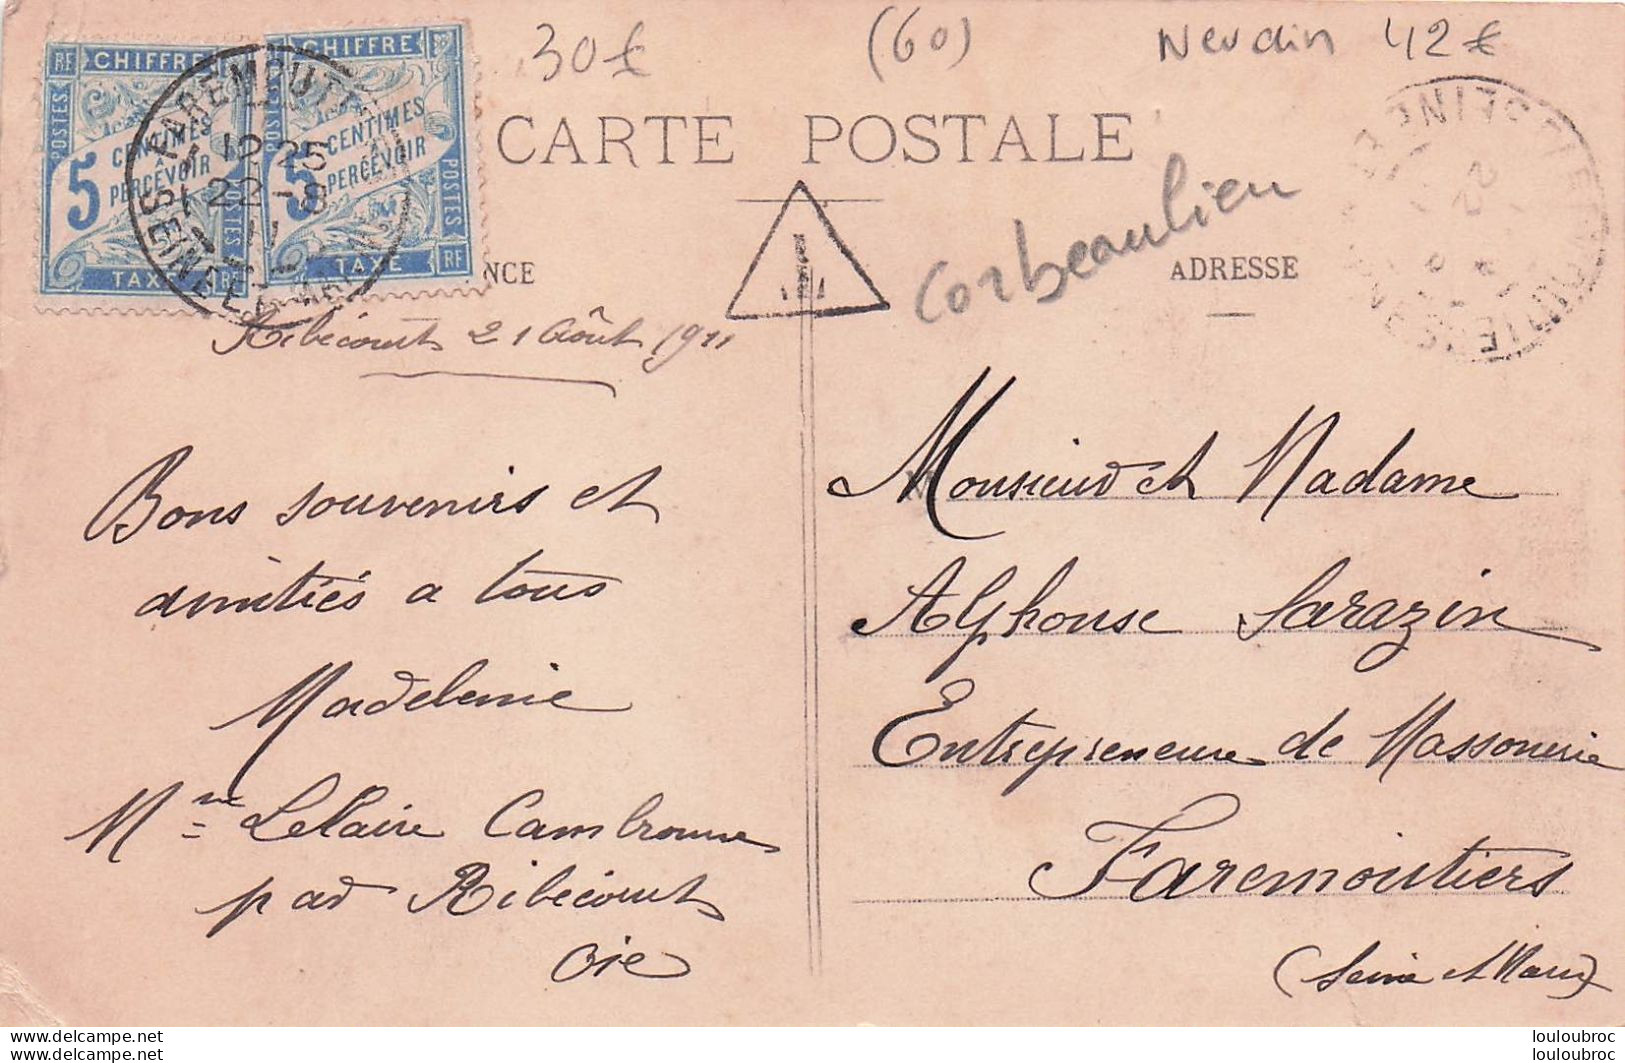 30€ (60) Nerdin 42€
RF CHIFFRE
POSTES
5 CENTIMES
À
PERCEVOIR
POSTES
TAXE RF
CHIFFRE
POSTES
5 CENTIMES
À
PERCEVOIR
POSTES
TAXE RF
FAREMOUTI
12 25
22 - 8
11
SEINE ET MARNE
CARTE POSTALE
T
Corbeaulieu
NCE
ADRESSE
Ribécourt 21 Août 1911
Bons souvenirs et
amitiés a tous
Madeleine
Mme Lelaire Cambronne
par Ribécourt
Oise
Monsieur et Madame
Alphonse Sarazin
Entrepreneur de Massonerie
Faremoutiers
(Seine et Marne)
louloubroc
louloubroc